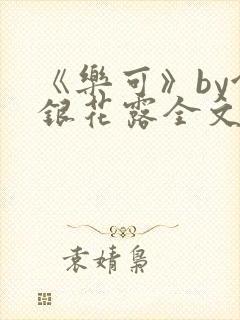 《樂可》by
銀花露全文
袁婧梟